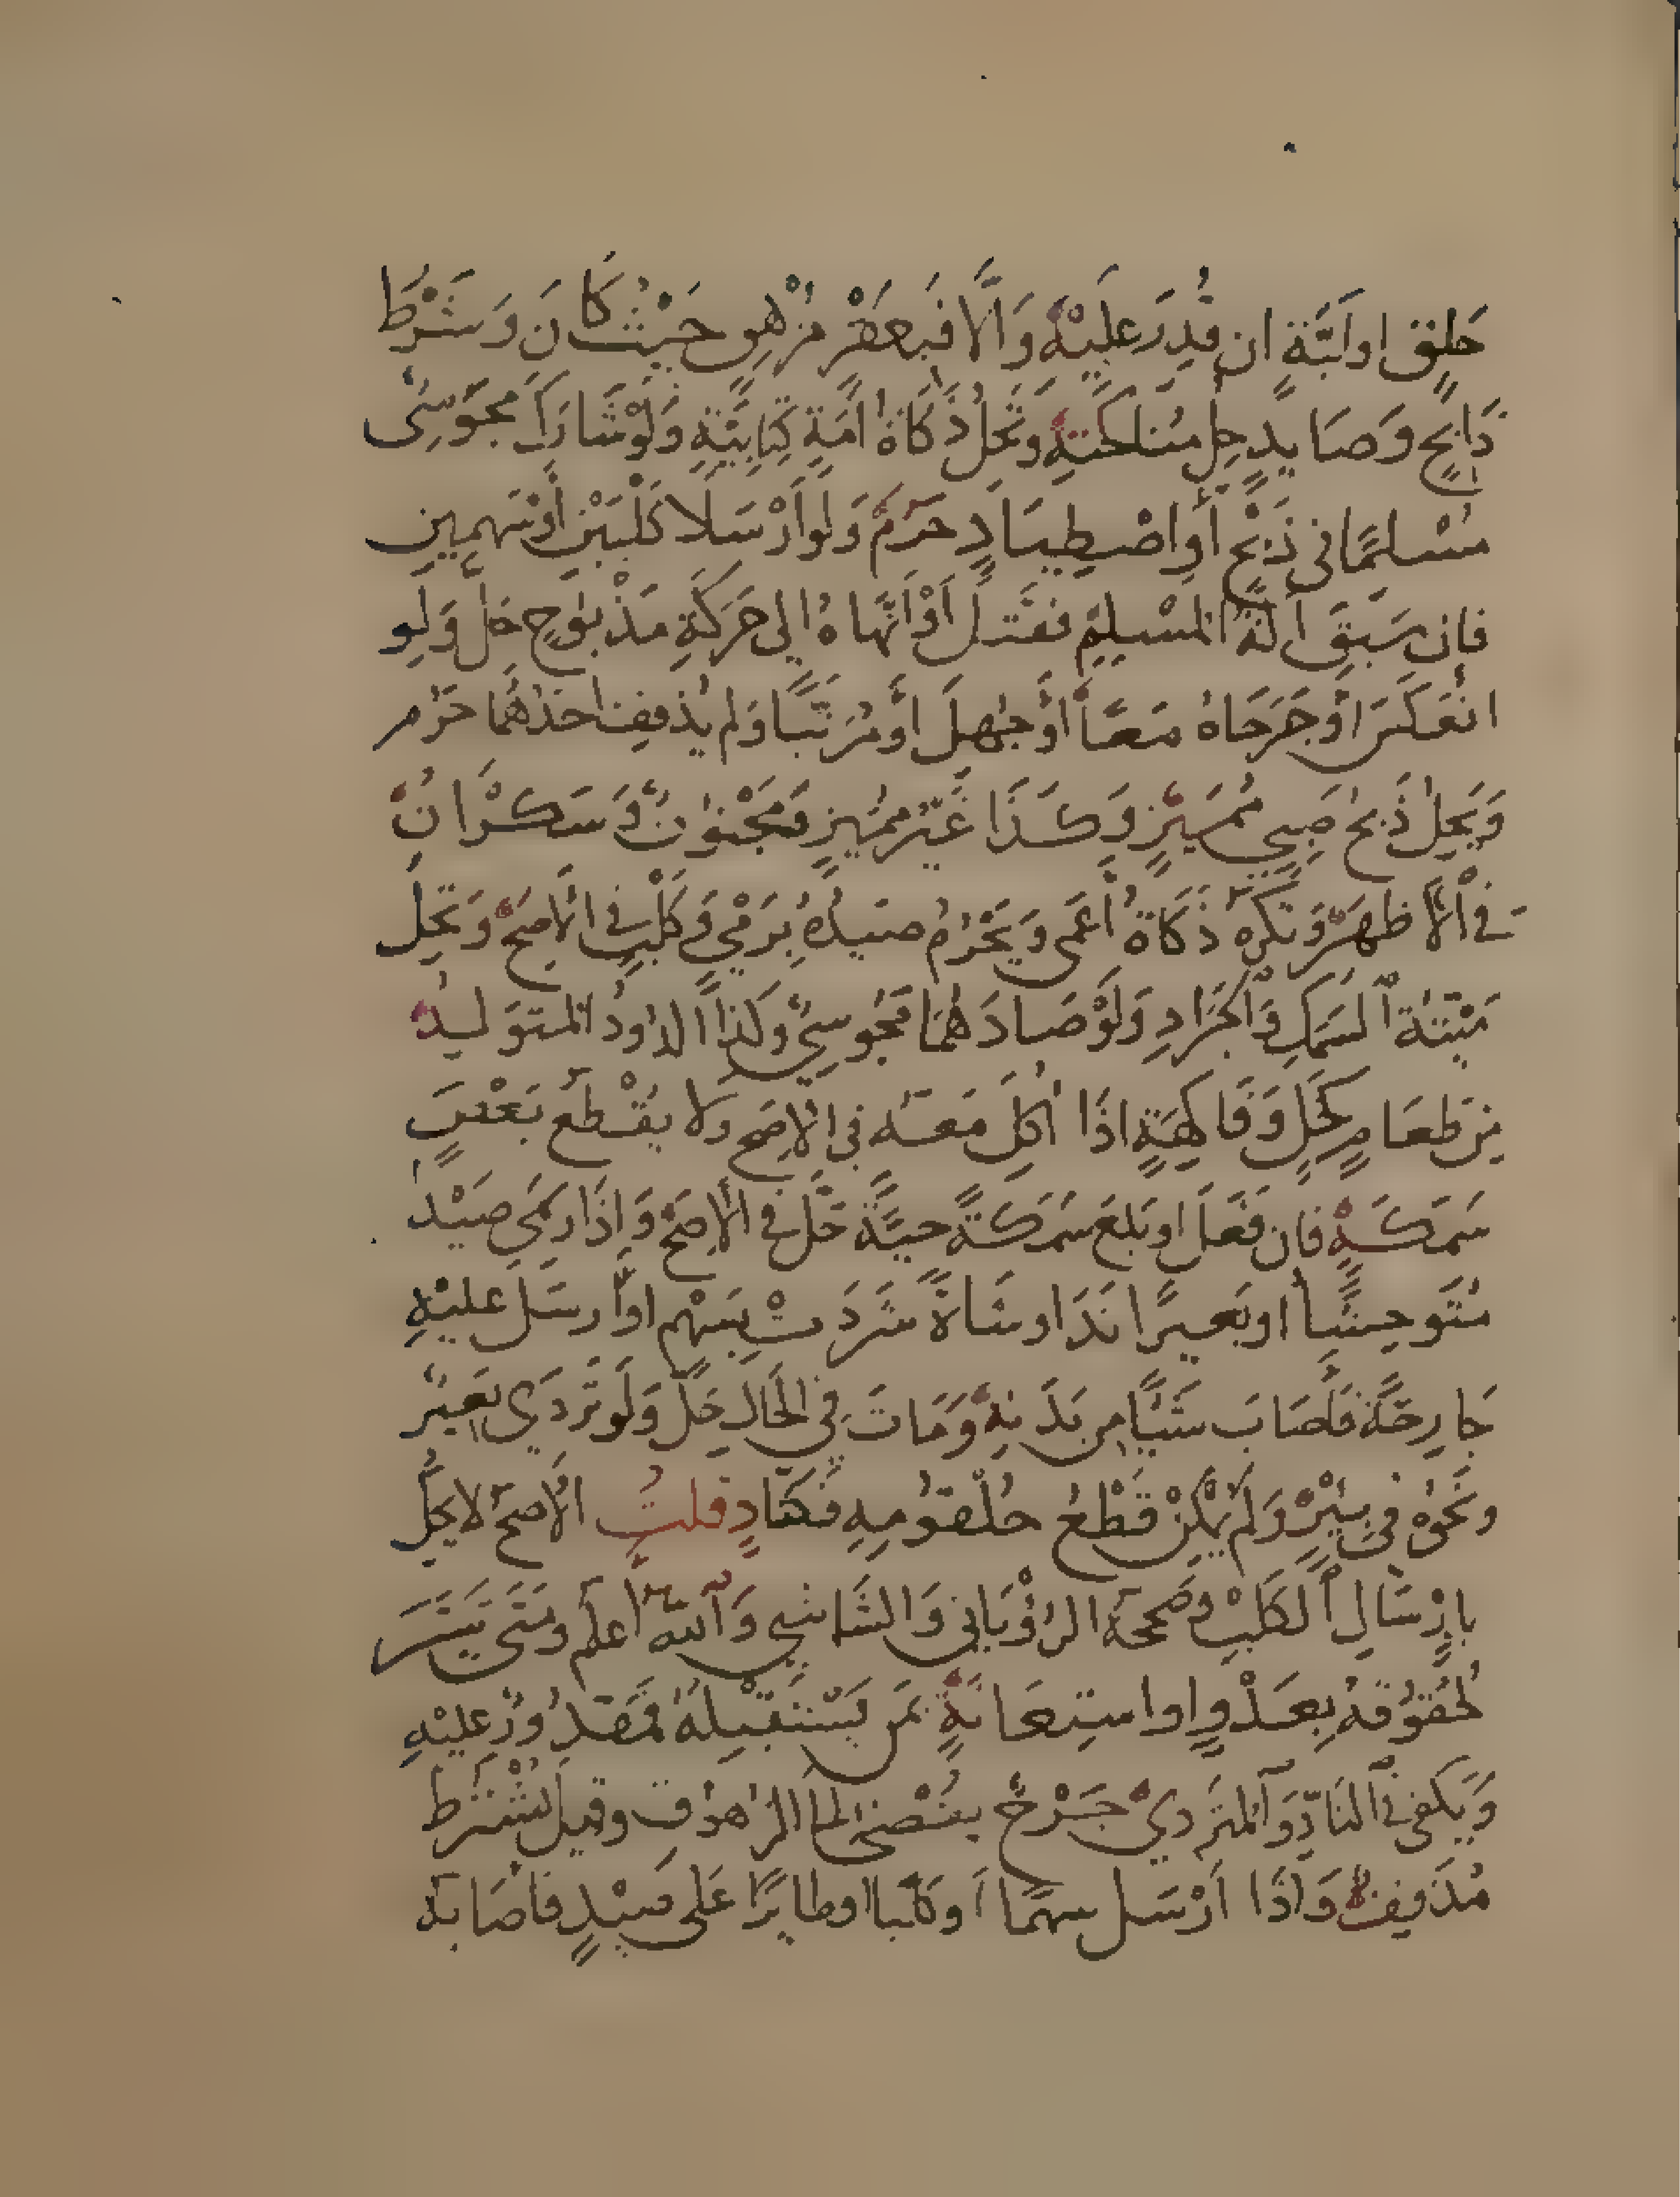 حَلْقٍ اولَبَّةٍ ان قُدِرَ عَلَيْهِ وَالَّا فَبِعَقْرٍ مُزْهِقٍ حَيْثُ كَانَ وَشَرْطُ
ذَابِحٍ وَصَايدٍ حِلُّ مُنَاكَحَتِهِ وَتَحِلُّ ذَكَاةُ اَمَةٍ كِتَابِيَّةٍ وَلَوْ شَارَكَ مجُوسِىٌّ
مُسْلِمًا فى ذَبْحٍ أَواصْطِيَادٍ حَرُمَ وَلَواَرْسَلَا كَلْبَيْنِ أَوْسَهمينِ
فان سَبَقَ آلَةُ المُسْلِمِ فقَتَلَ اَوْاَنْهَاهُ الى حَرَكَةِ مَذْبُوحٍ حَلَّ وَلَو
انْعَكَسَ اَوْجَرَحَاهُ مَعًا أَوْجُهِلَ اَوْمُرَتَّبًا وَلم يُذَفِّف اَحَدُهُمَا حَرُم
وَيَحِلُّ ذَبْحُ صَبِيٍّ مُمَيِّزٍ وَكَذَا غَيْرُ مُمَيِّزٍ وَمَجْنُونٌ وَسَكْرَانُ
في اْلأَظهَرِ وَتُكْرَهُ ذَكَاةُ أَعْمَى وَيَحْرُمُ صَيْدُهُ بِرَمْيٍ وَكَلْبٍ في الْاَصَحِّ وَتَحِلُّ
مَيْتَةُ السَّمَكِ وَاْلجَرَادِ وَلَوْ صَادَهُمَا مَجُوسِيٌّ وَكَذَا الدُّودُ الْمتَوَلِّدُ
مِن طَعَامٍ كَخَلٍّ وَفَاكِهَةٍ اذَا اُكِلَ مَعَهُ فى الْاصَحِّ وَلَا يُقْطَعُ بَعْضُ
سَمَكَةٍ فان فَعَلَ اوبَلِعَ سَمَكَةً حيَّةً حَلَّ في اْلاصَحِّ وَاِذَا رَمَى صَيْدًا
مُتَوحِشًا اوبَعيرًا نَدَّ اوشَاةً شَرَدَتْ بِسَهْمٍ اواَرسَل عليْهِ
جَارِحَةً فَأَصَابَ شَيًْا من بَدَنِهِ وَمَاتَ في الْحَالِ حَلَّ وَلَو تَرَدَّى بَعِيرٌ
وَنَحْوُهُ في بِئْرٍ وَلَمْ يُمْكِنْ قَطْعُ حُلْقُومِهِ فَكَنَادٍّ قلتُ الْاَصَحُّ لا يَحِلُّ
بِاِرْسَالِ الْكَلْبِ وَصَححَهُ الرُّؤْيَانِى وَالشَّاشِي وَاللَّهُ أَعْلَم وَمَتَى تَيَسَّرَ
لُحُوقُهُ بِعَدْوٍ اواستِعَانَةٍ بمَن يَسْتَقْبِلُهُ فَمَقْدُورٌ عَلَيْهِ
وَيَكفى في النَّادِّ وَالْمُتَرَدِّي جَرْحٌ يُفْضى الى الزُّهُوقِ وقيلَ يُشْتَرَطُ
مُذَفِّفٌ وَاِذَا اَرْسَل سهمًا اَوكَلْبًا اوطايرًا عَلى صَيْدٍ فَأَصَابَهُ